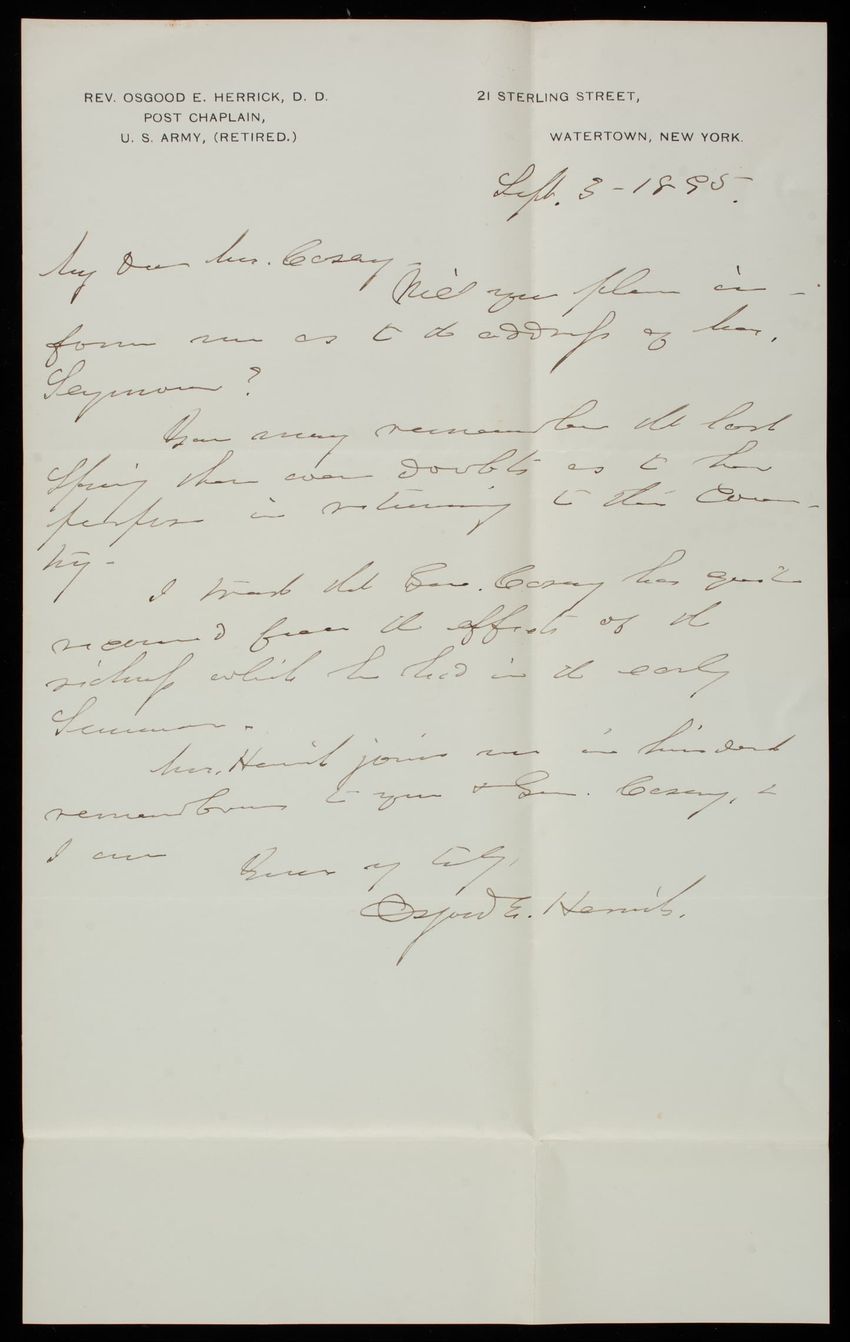 REV. OSGOOD E. HERRICK, D. D.
POST CHAPLAIN,
U. S. ARMY, (RETIRED.)
21 STERLING STREET,
WATERTOWN, NEW YORK.
Sept. 3 - 1895.
My Dear Mrs. Casey
Will you please in-
form me as to the address of Mrs.
Seymour?
You may remember that last
Spring there were doubts as to her
purpose in returning to this Coun-
try-
I trust that Gen. Casey has quite
recovered from the effects of the
sickness which he had in the early
Summer.
Mrs. Herrick joins me in kindest
remembrances to you & Gen. Casey, &
I am
Yours truly,
Osgood E. Herrick.